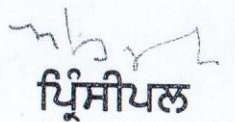 ਪ੍ਰਿੰਸੀਪਲ